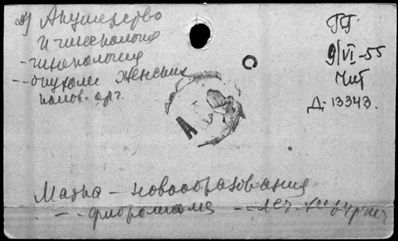 а) Акушерство
и гинекология
- гинекология
-- опухоли женских
полов. орг.
ГГ
9/VI-55
Чит
Д. 13343.
А
Матка - новообразования
-- фибромиома -- леч. хирургич